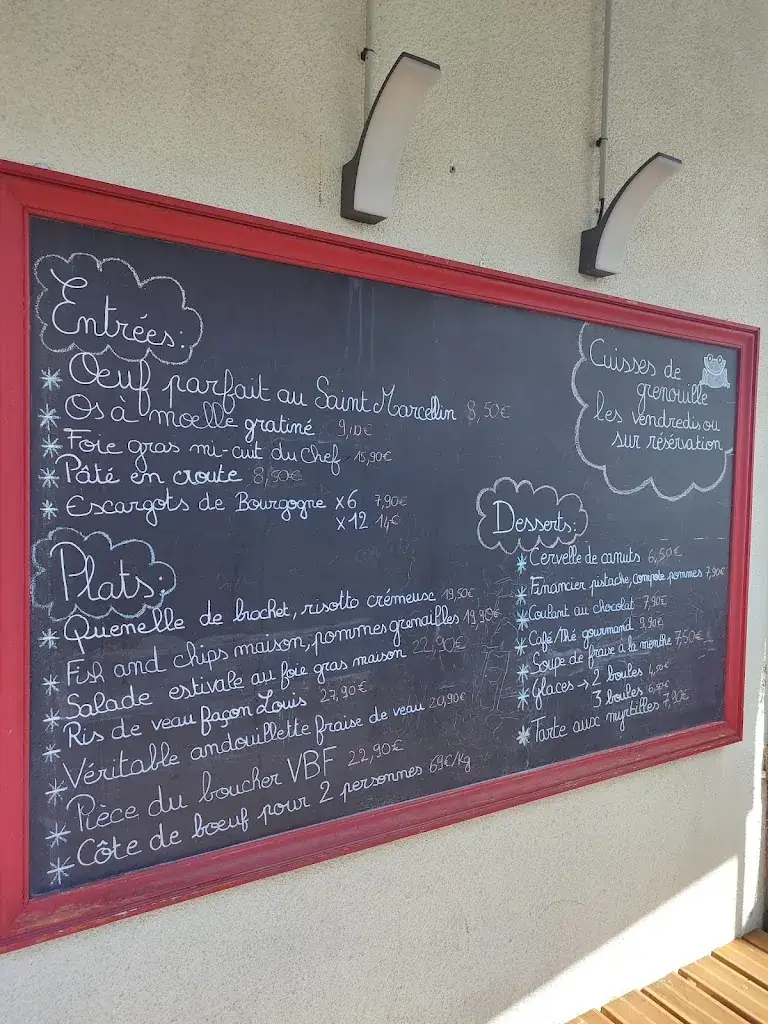 Entrées:
* Œuf parfait au Saint Marcellin 8,50€
* Os à moelle gratiné 9,10€
* Foie gras mi-cuit du chef 15,90€
* Pâté en croute 8,90€
* Escargots de Bourgogne x6 7,90€
x12 14€
Plats:
* Quenelle de brochet, risotto crémeux 19,50€
* Fish and chips maison, pommes grenailles 19,90€
* Salade estivale au foie gras maison 22,90€
* Ris de veau façon Louis 27,90€
* Véritable andouillette fraise de veau 20,90€
* Pièce du boucher VBF 22,90€
* Côte de boeuf pour 2 personnes 69€/kg
Cuisses de
grenouille
les vendredis ou
sur réservation
Desserts:
* Cervelle de canuts 6,50€
* Financier pistache, compote pommes 7,90€
* Coulant au chocolat 7,90€
* Café/Thé gourmand 9,90€
* Soupe de fraise à la menthe 7,50€
* Glaces → 2 boules 4,50€
3 boules 6,50€
* Tarte aux myrtilles 7,90€